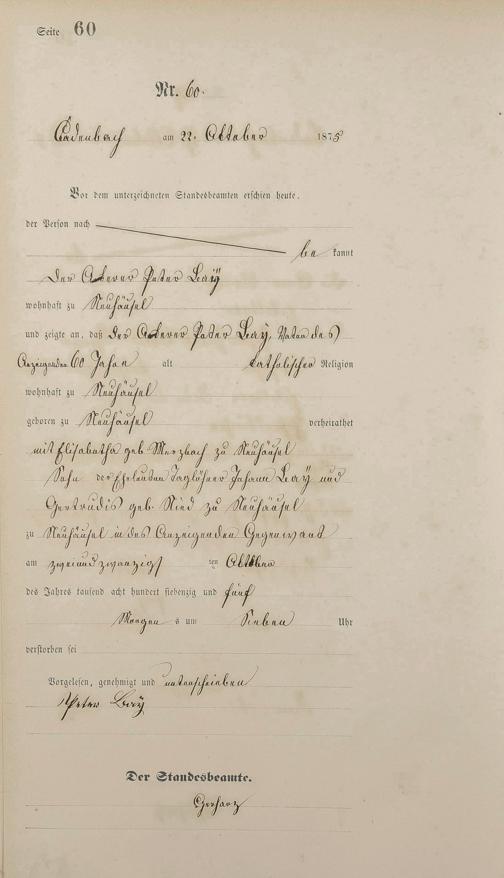 Seite 60
Nr. 60.
Cadenbach am 22. Oktober 1875
Vor dem unterzeichneten Standesbeamten erschien heute,
der Person nach
be kannt
der Ackerer Peter Bay
wohnhaft zu Neuhäusel
und zeigte an, daß der Ackerer Peter Bay, Vater des
Anzeigenden 60 Jahre alt katholischer Religion
wohnhaft zu Neuhäusel
geboren zu Neuhäusel verheirathet
mit Elisabetha geb. Merzbach zu Neuhäusel
Sohn der Eheleuten Taglöhner Johann Bay und
Gertrudis geb. Nied zu Neuhäusel
zu Neuhäusel in des Anzeigenden Gegenwart
am zweiundzwanzigs ten Oktober
des Jahres tausend acht hundert siebenzig und fünf
Morgen s um Sieben Uhr
verstorben sei
Vorgelesen, genehmigt und unterschrieben
Peter Bay
Der Standesbeamte.
Gerharz